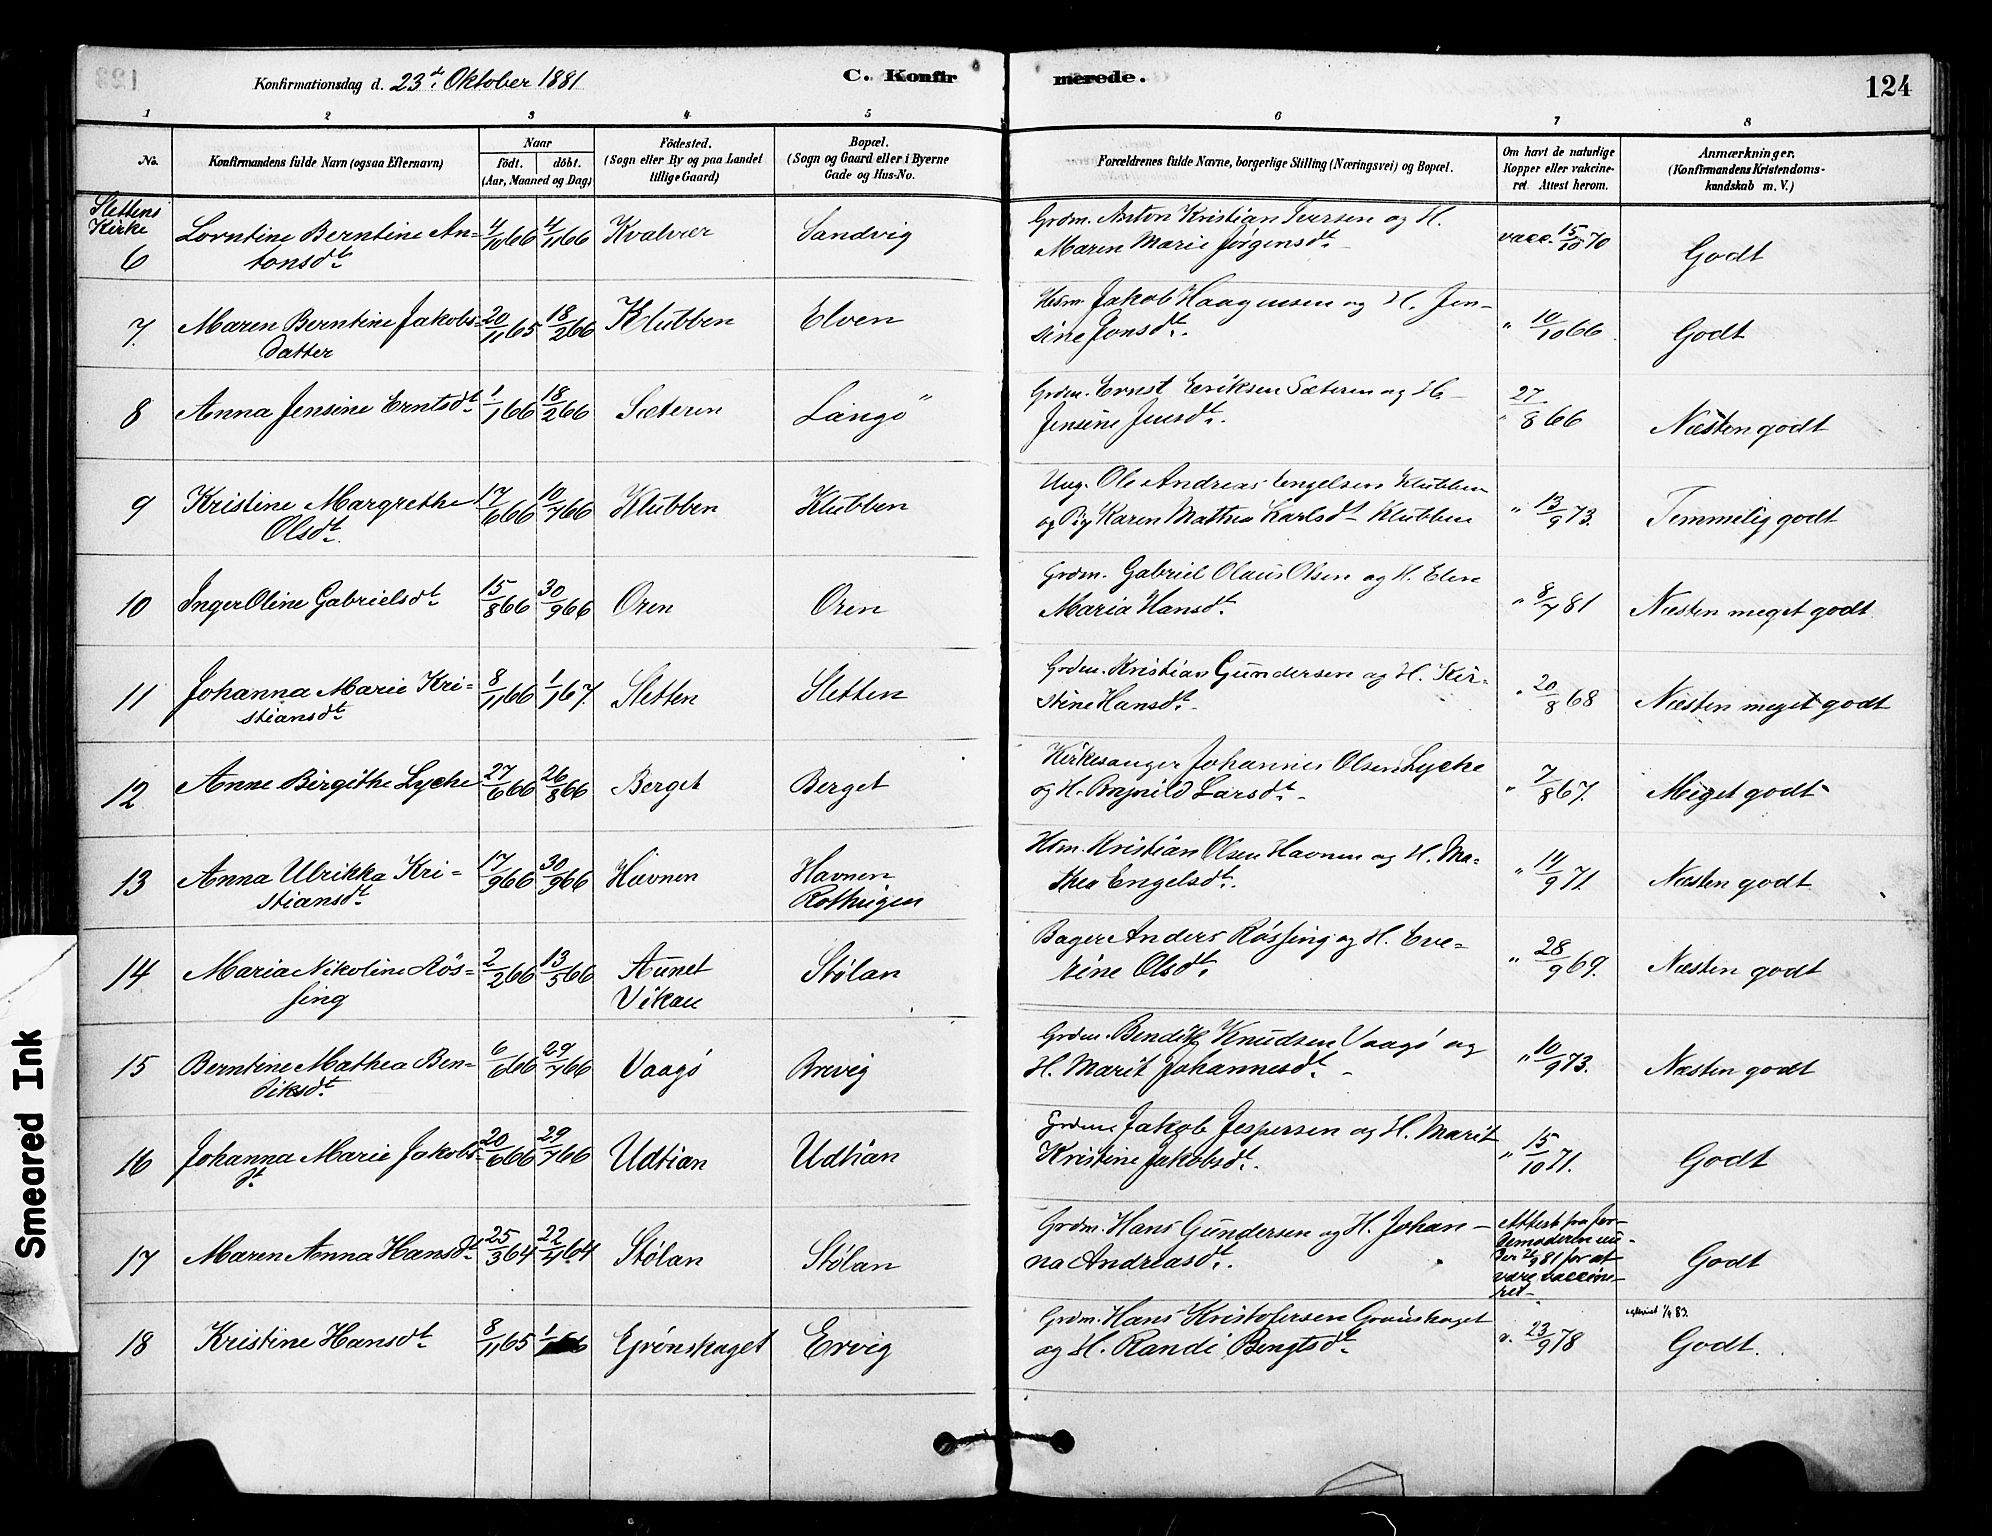 123
Konfirmationsdag d. 23de Oktober 1881
C. Konfir
merede.
124
1 2 3 4 5 6 7 8
No.
Konfirmandens fulde Navn (ogsaa Efternavn)
Naar
født. døbt.
(Aar, Maaned og Dag)
Fødested.
(Sogn eller By og paa Landet
tillige Gaard)
Bopæl.
(Sogn og Gaard eller i Byerne
Gade og Hus-No.
Forældrenes fulde Navne, borgerlige Stilling (Næringsvei) og Bopæl.
Om havt de naturlige
Kopper eller vakcine-
ret. Attest herom.
Anmærkninger.
(Konfirmandens Kristendoms-
kundskab m. V.)
Slettens
Kirke
6 Lorntine Berntine An- 4/10 66 4/11 66 Kvalvær Sandvig Grdm. Anton Kristian Iversen og H. vacc. 15/10 70 Godt
tonsdt. Maren Marie Jørgensdt.
7 Maren Berntine Jakobs- 20/11 65 18/2 66 Klubben Elven Husm. Jakob Haagensen og H. Jen- " 10/10 66 Godt
datter sine Jonsdt.
8 Anna Jensine Erntsdt. 1/1 66 18/2 66 Sæteren Langø Grdm. Ernst Eriksen Sæteren og H. " 27/8 66 Næsten godt
Jensine Jensdt.
9 Kristine Margrethe 17/6 66 10/7 66 Klubben Klubben Ung. Ole Andreas Engelsen Klubben " 13/9 73. Temmelig godt
Olsdt. og Pig Karen Mathea Karlsdt Klubben
10 Inger Oline Gabrielsdt. 15/8 66 30/9 66 Oren Oren Grdm. Gabriel Olaus Olsen og H. Elen " 8/7 81 Næsten meget godt
Maria Hansdt.
11 Johanna Marie Kri- 8/11 66 1/1 67. Sletten Sletten Grdm. Kristian Gundersen og H. Kir- " 20/8 68 Næsten meget godt
stiansdt. stine Hansdt.
12 Anne Birgithe Lyche 27/6 66 26/8 66 Berget Berget Kirkesanger Johannes Olsen Lyche " 7/8 67. Meget godt
og H. Larsdt.
13 Anna Ulrikka Kri- 17/9 66 30/9 66 Havnen Havnen Husm. Kristian Olsen Havnen og H. Ma- " 14/9 71. Næsten godt
stiansdt. Rottingen thea Engelsdt.
14 Maria Nikoline Røs- 2/2 66 13/5 66 Aunet Stølan Bager Anders Røssing og H. Eve- " 28/9 69. Næsten godt
sing Vikan line Olsdt.
15 Berntine Mathea Ben- 6/6 66 29/7 66 Vaagø Brevig Grdm. Bendik Knudsen Vaagø og " 10/9 73. Næsten godt
diksdt. H. Marit Johannesdt.
16 Johanna Marie Jakobs- 20/6 66 29/7 66 Udtian Udtian Grdm. Jakob Jespersen og H. Marit " 15/10 71. Godt
dt. Kristine Jakobsdt.
17 Maren Anna Hansdt. 25/3 64 22/4 64 Stølan Stølan Grdm. Hans Gundersen og H. Johan- Attest fra Jor- Godt
na Andreasdt. demoderen un-
der 81 for at
være vaccine-
ret
18 Kristine Hansdt. 8/11 65 Grønskaget Ervig Grdm. Hans Kristofersen Grønskaget v. 23/9 78 Godt.
og H. Randi Bengtsdt.
Smeared Ink